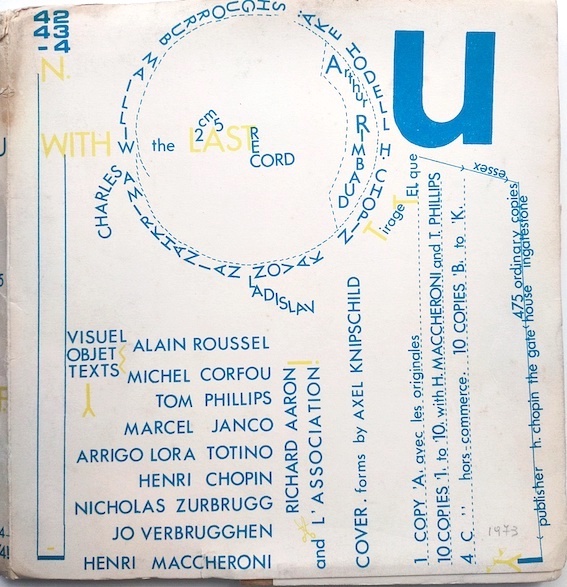 42
43
-4
N.
OU
WITH the LAST
25 cm
RECORD
WILLIAM BURROUGHS
ÅKE HODELL
H. CHOPIN
LADISLAV NOVAK
CHARLES AMIRKHANIAN
Arthur RIMBAUD
Tirage TEL que
VISUEL
OBJET
TEXTS
ALAIN ROUSSEL
MICHEL CORFOU
TOM PHILLIPS
MARCEL JANCO
ARRIGO LORA TOTINO
HENRI CHOPIN
NICHOLAS ZURBRUGG
JO VERBRUGGHEN
HENRI MACCHERONI
RICHARD AARON
and L'ASSOCIATION
COVER. forms by AXEL KNIPSCHILD
1 COPY 'A. avec les originales
10 COPIES '1. to '10. with H. MACCHERONI and T. PHILLIPS
4 C " hors-commerce. 10 COPIES 'B. to 'K.
475 ordinary copies
publisher h. chopin the gate house ingatestone
essex
1973